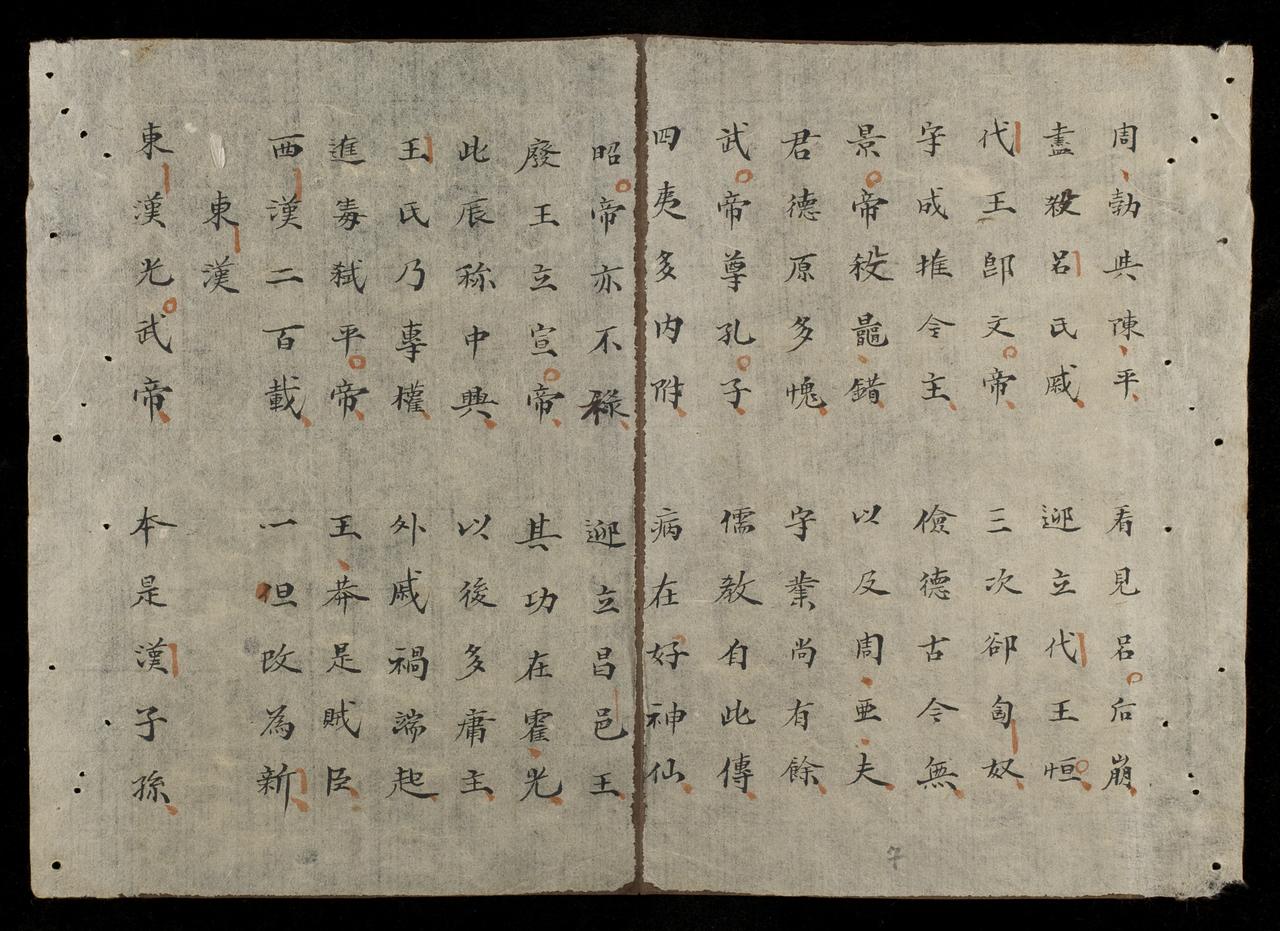 周勃與陳平 看見呂后崩
盡殺呂氏戚 迎立代王恒
代王即文帝 三次卻匈奴
守成推令主 儉德古今無
景帝殺鼂錯 以及周亞夫
君德原多愧 守業尚有餘
武帝尊孔子 儒教自此傳
四夷多内附 病在好神仙
昭帝亦不祿 迎立昌邑王
廢王立宣帝 其功在霍光
此辰称中興 以後多庸主
王氏乃專權 外戚禍端起
進毒弒平帝 王莽是賊臣
西漢二百載 一但改為新
東漢
東漢光武帝 本是漢子孫